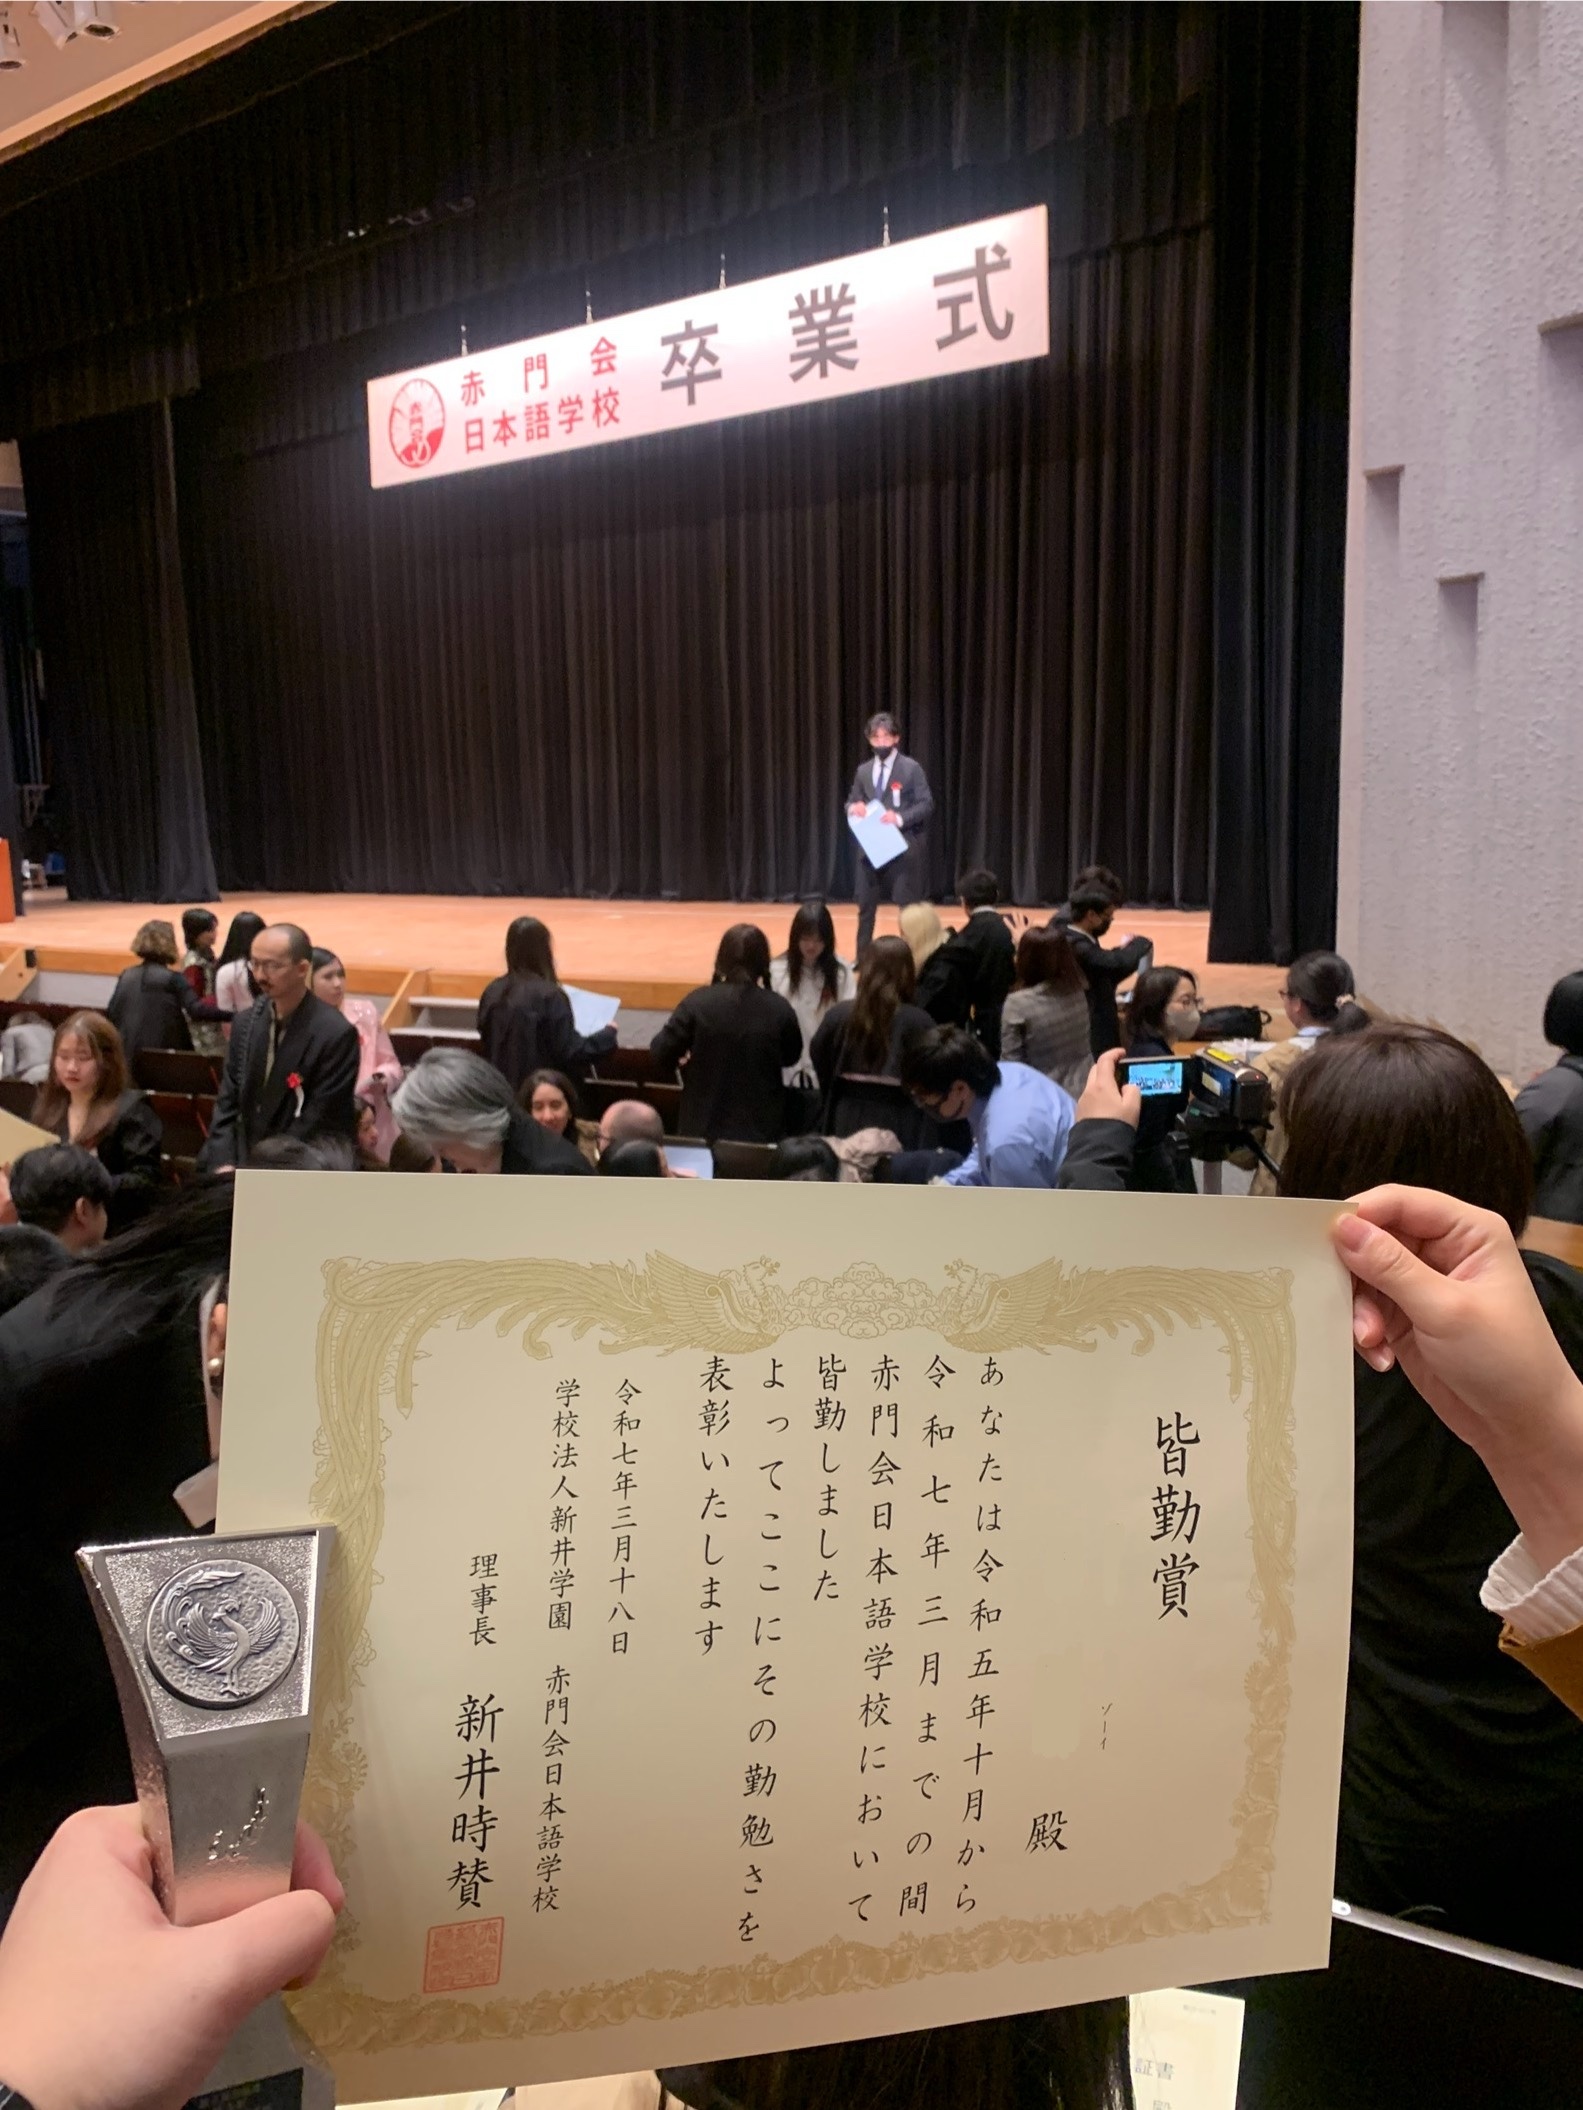 赤門会
日本語学校
卒業式
皆勤賞
ゾーイ
殿
あなたは令和五年十月から
令和七年三月までの間
赤門会日本語学校において
皆勤しました
よってここにその勤勉さを
表彰いたします
令和七年三月十八日
学校法人新井学園 赤門会日本語学校
理事長 新井時賛
証書
殿